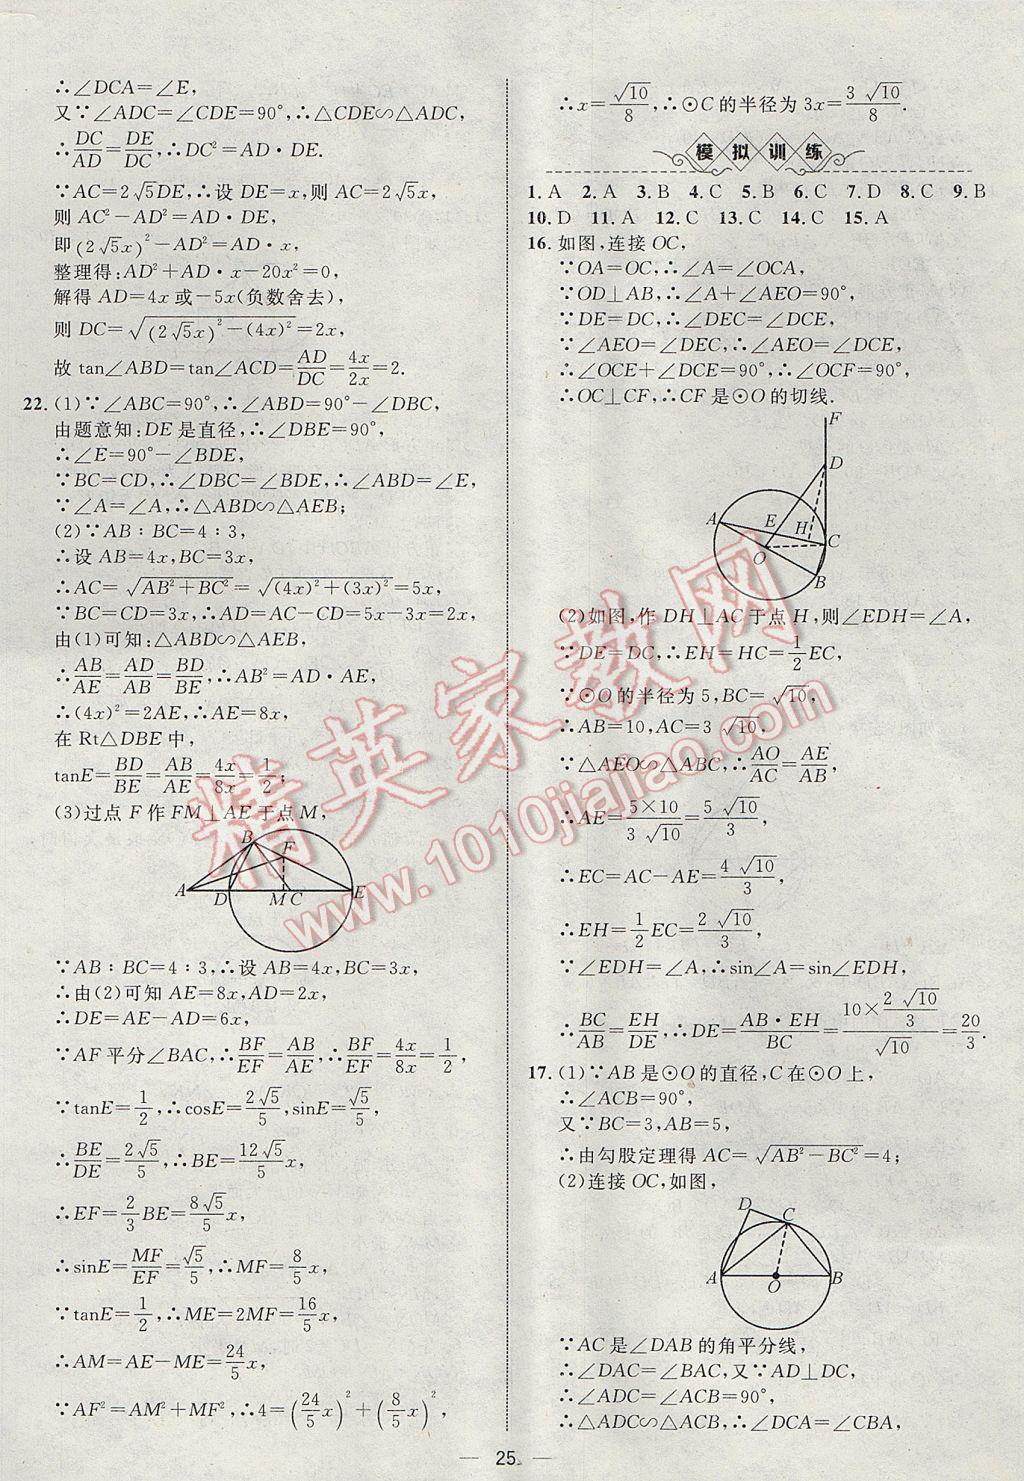 ∴∠DCA=∠E,
又∵∠ADC=∠CDE=90°,∴△CDE∽△ADC,
∴DC/AD=DE/DC,∴DC²=AD·DE.
∵AC=2√5DE,∴设DE=x,则AC=2√5x,
则AC²-AD²=AD·DE,
即(2√5x)²-AD²=AD·x,
整理得:AD²+AD·x-20x²=0,
解得AD=4x或-5x(负数舍去),
则DC=√((2√5x)²-(4x)²)=2x,
故tan∠ABD=tan∠ACD=AD/DC=4x/2x=2.
22.(1)∵∠ABC=90°,∴∠ABD=90°-∠DBC,
由题意知:DE是直径,∴∠DBE=90°,
∴∠E=90°-∠BDE,
∵BC=CD,∴∠DBC=∠BDE,∴∠ABD=∠E,
∵∠A=∠A,∴△ABD∽△AEB;
(2)∵AB∶BC=4∶3,
∴设AB=4x,BC=3x,
∴AC=√(AB²+BC²)=√((4x)²+(3x)²)=5x,
∵BC=CD=3x,∴AD=AC-CD=5x-3x=2x,
由(1)可知:△ABD∽△AEB,
∴AB/AE=AD/AB=BD/BE,∴AB²=AD·AE,
∴(4x)²=2AE,∴AE=8x,
在Rt△DBE中,
tanE=BD/BE=AB/AE=4x/8x=1/2;
(3)过点F作FM⊥AE于点M,
B
F
A D M C E
∵AB∶BC=4∶3,∴设AB=4x,BC=3x,
∴由(2)可知AE=8x,AD=2x,
∴DE=AE-AD=6x,
∵AF平分∠BAC,∴BF/EF=AB/AE,∴BF/EF=4x/8x=1/2,
∵tanE=1/2,∴cosE=2√5/5,sinE=√5/5,
∴BE/DE=2√5/5,∴BE=12√5/5x,
∴EF=2/3BE=8√5/5x,
∴sinE=MF/EF=√5/5,∴MF=8/5x,
∵tanE=1/2,∴ME=2MF=16/5x,
∴AM=AE-ME=24/5x,
∵AF²=AM²+MF²,∴4=(24/5x)²+(8/5x)²,
∴x=√10/8,∴⊙C的半径为3x=3√10/8.
模拟训练
1.A 2.A 3.B 4.C 5.B 6.C 7.D 8.C 9.B
10.D 11.A 12.C 13.C 14.C 15.A
16.如图,连接OC,
∵OA=OC,∴∠A=∠OCA,
∵OD⊥AB,∴∠A+∠AEO=90°,
∵DE=DC,∴∠DEC=∠DCE,
∵∠AEO=∠DEC,∴∠AEO=∠DCE,
∴∠OCE+∠DCE=90°,∴∠OCF=90°,
∴OC⊥CF,∴CF是⊙O的切线.
F
D
A E H C
O
B
(2)如图,作DH⊥AC于点H,则∠EDH=∠A,
∵DE=DC,∴EH=HC=1/2EC,
∵⊙O的半径为5,BC=√10,
∴AB=10,AC=3√10,
∵△AEO∽△ABC,∴AO/AC=AE/AB,
∴AE=5×10/3√10=5√10/3,
∴EC=AC-AE=4√10/3,
∴EH=1/2EC=2√10/3,
∵∠EDH=∠A,∴sin∠A=sin∠EDH,
∴BC/AB=EH/DE,∴DE=AB·EH/BC=(10×2√10/3)/√10=20/3.
17.(1)∵AB是⊙O的直径,C在⊙O上,
∴∠ACB=90°,
又∵BC=3,AB=5,
∴由勾股定理得AC=√(AB²-BC²)=4;
(2)连接OC,如图,
D C
A O B
∵AC是∠DAB的角平分线,
∴∠DAC=∠BAC,又∵AD⊥DC,
∴∠ADC=∠ACB=90°,
∴△ADC∽△ACB,∴∠DCA=∠CBA,
精英家教网
www.1010jiajiao.com
— 25 —